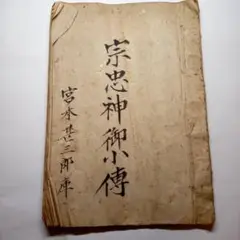 宗忠神御小傳
宮本甚三郎庫